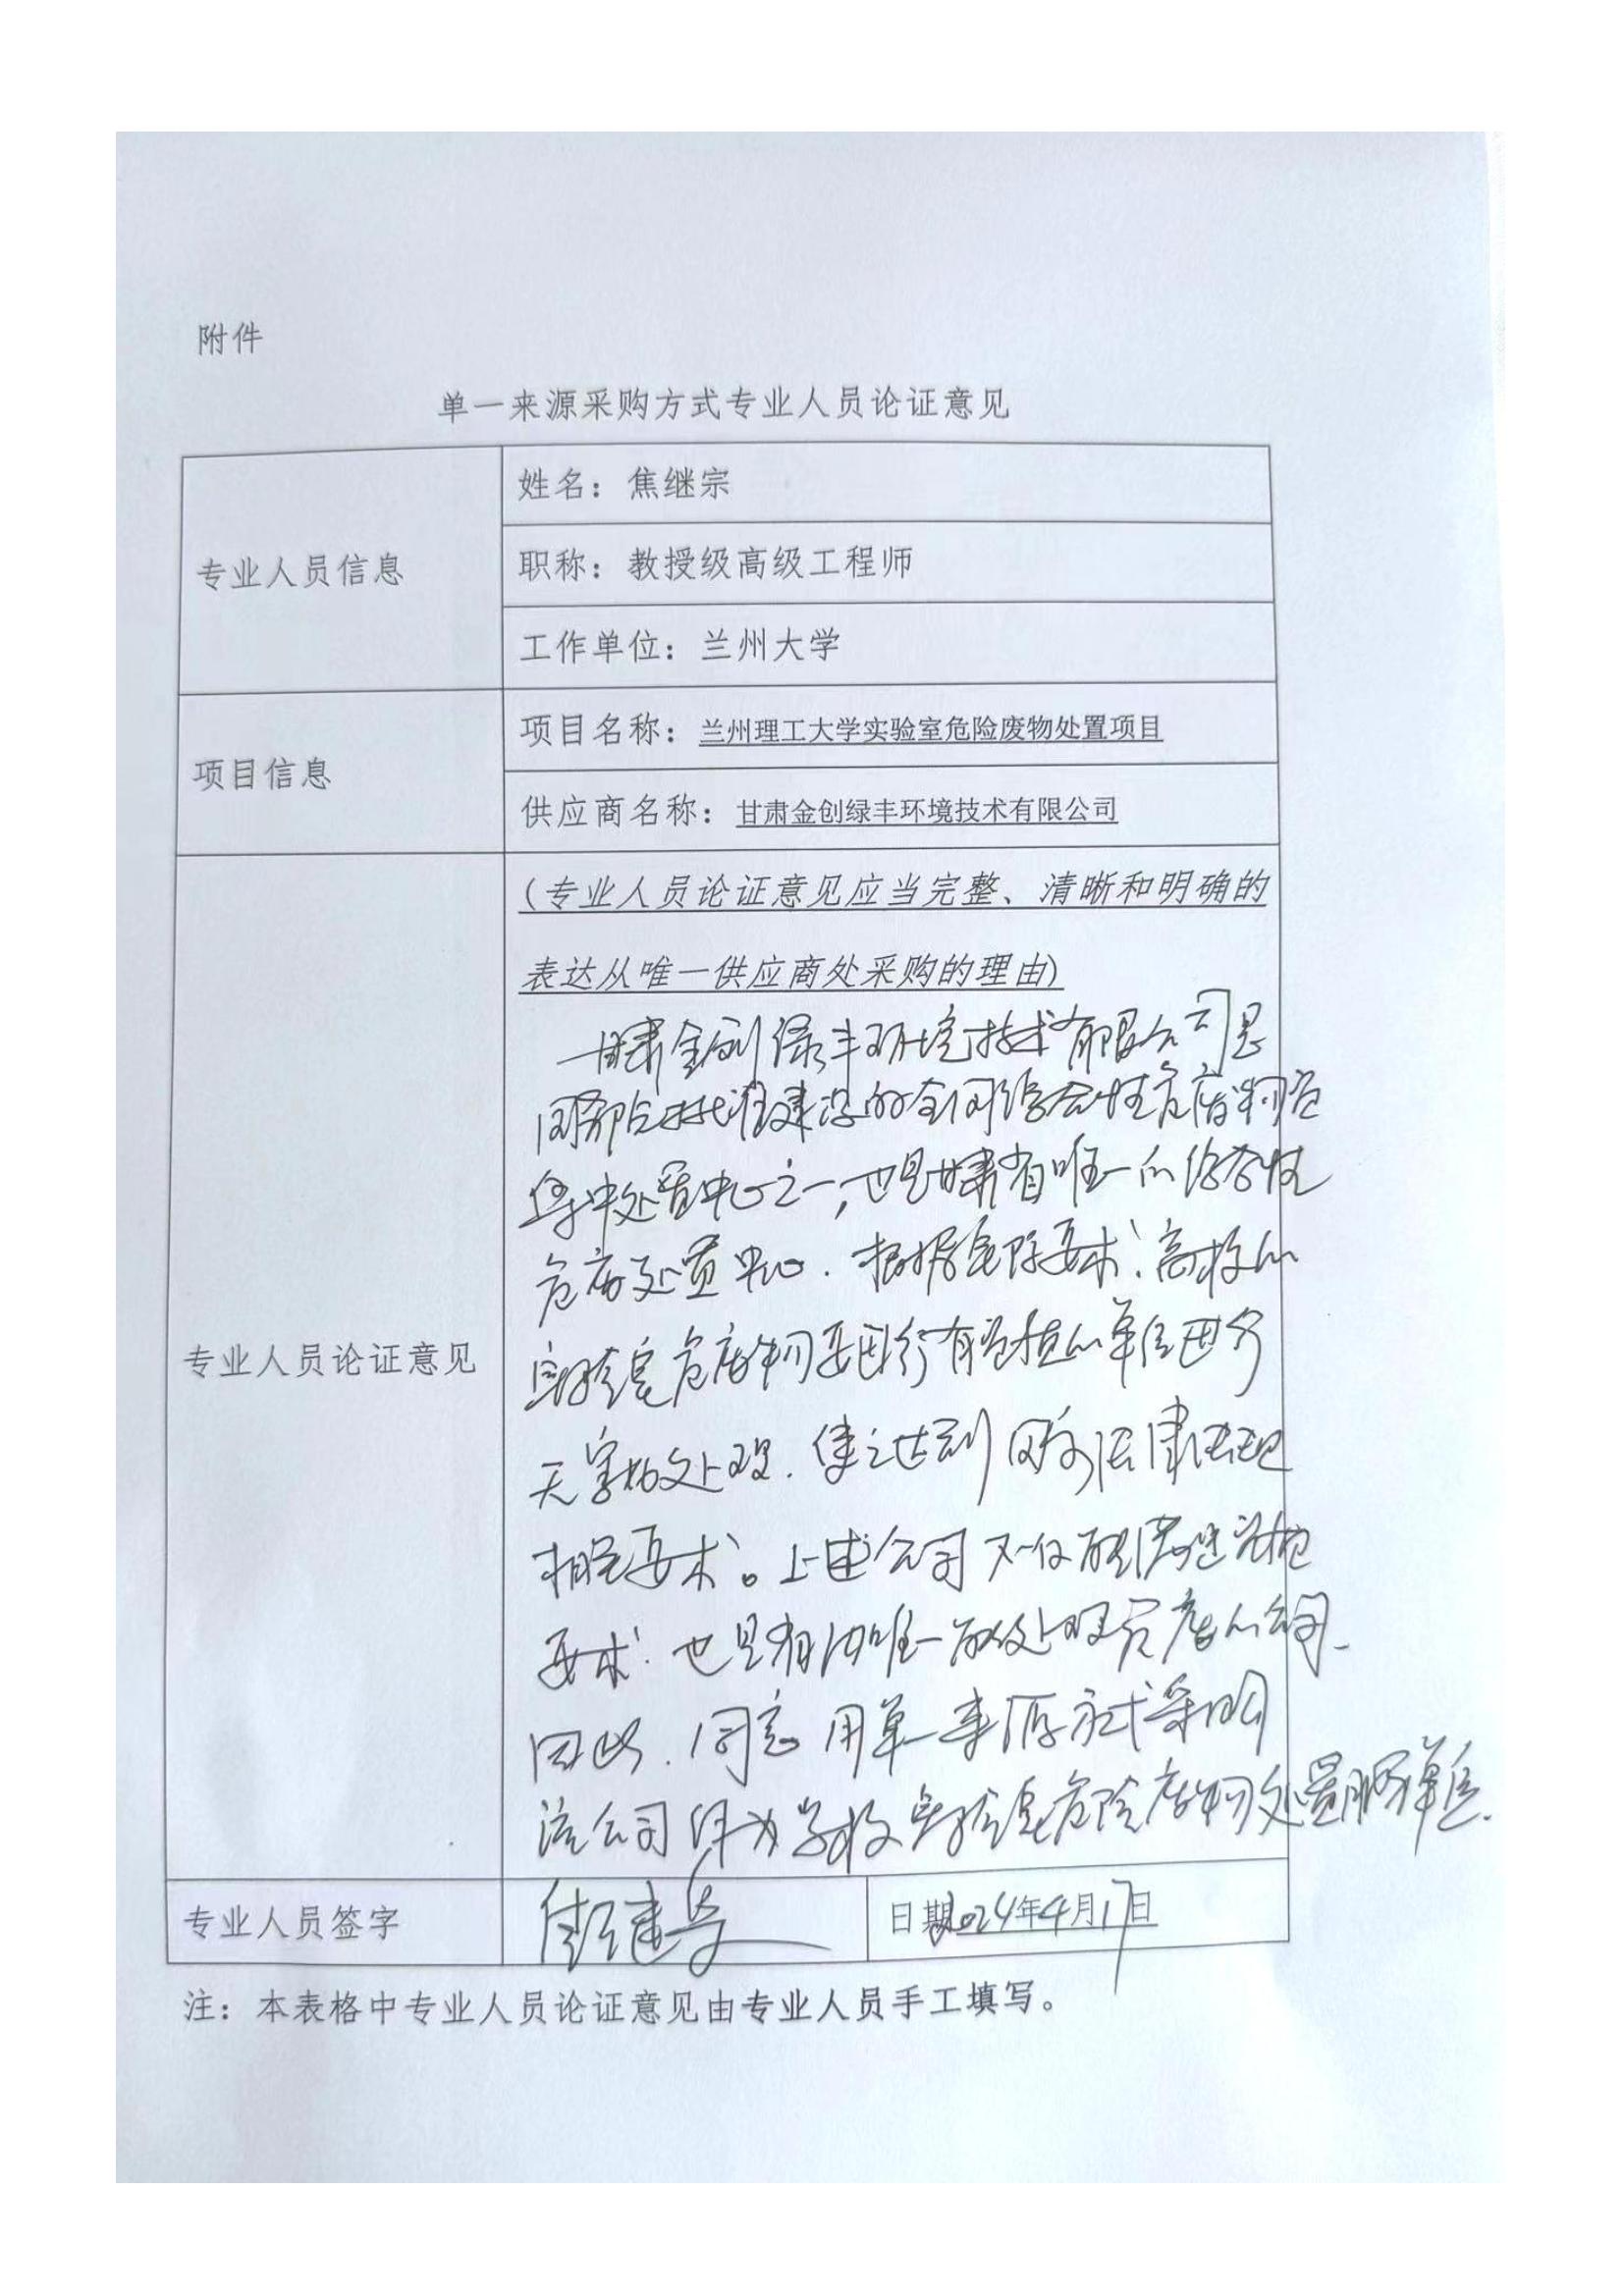 附件
单一来源采购方式专业人员论证意见
专业人员信息
姓名：焦继宗
职称：教授级高级工程师
工作单位：兰州大学
项目信息
项目名称：兰州理工大学实验室危险废物处置项目
供应商名称：甘肃金创绿丰环境技术有限公司
专业人员论证意见
（专业人员论证意见应当完整、清晰和明确的
表达从唯一供应商处采购的理由）
甘肃金创绿丰环境技术有限公司是
国务院批准建设的全国综合性危废物
集中处置中心之一，也是甘肃省唯一的综合性
危废处置中心．根据要求，高校的
实验室危废物要由有资质的单位进行
无害化处理．使之达到国家法律法规
相关要求。上述公司不仅
要求，也是省内唯一处理危废的公司．
因此．同意用单一来源方式采购
该公司作为学校实验室危险废物处置服务单位．
专业人员签字
日期2024年4月17日
注：本表格中专业人员论证意见由专业人员手工填写。